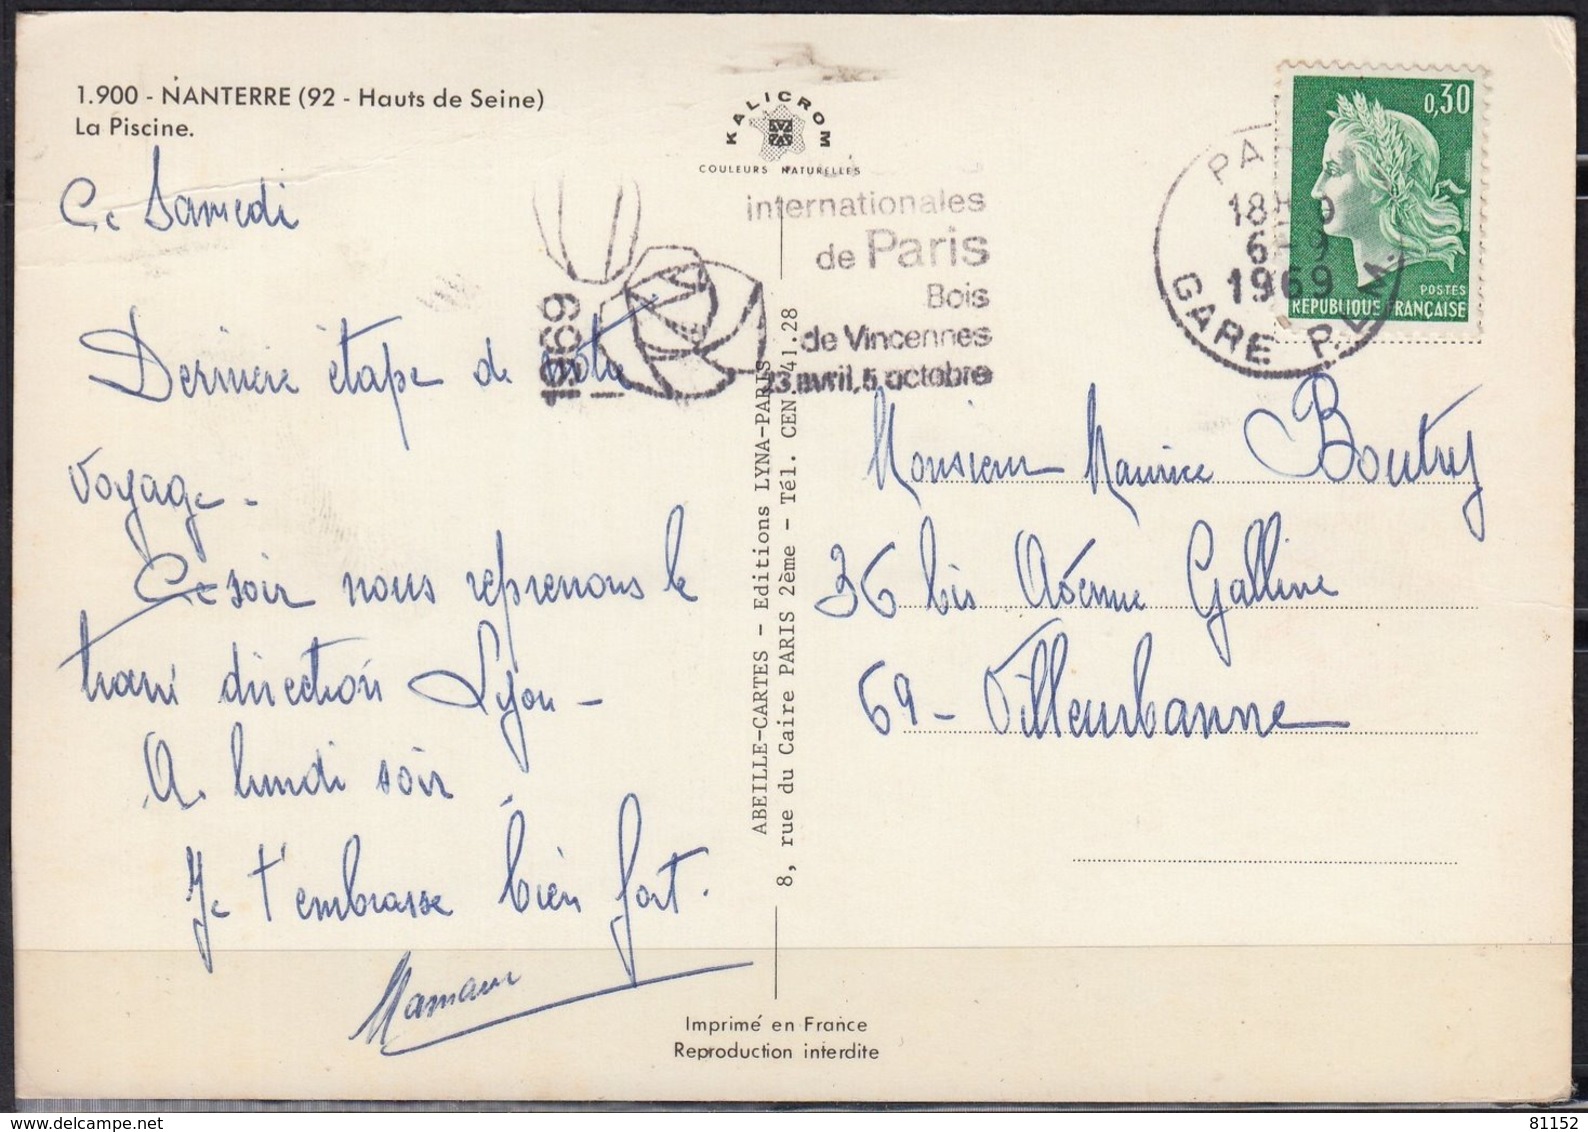 1.900 - NANTERRE (92 - Hauts de Seine)
La Piscine.
KALICROM
COULEURS NATURELLES
Ce Samedi
Dernière étape de notre
voyage -
Ce soir nous reprenons le
train direction Lyon -
A lundi soir
Je t'embrasse bien fort.
Maman
1969
internationales
de Paris
Bois
de Vincennes
23 avril, 5 octobre
PA
18H
6-9
1969
GARE P.L.M.
0,30
POSTES
REPUBLIQUE FRANÇAISE
Monsieur Maurice Boutry
36 bis Avenue Galline
69 - Villeurbanne
ABEILLE-CARTES - Editions LYNA-PARIS
8, rue du Caire PARIS 2ème - Tél. CEN. 41.28
Imprimé en France
Reproduction interdite
81152